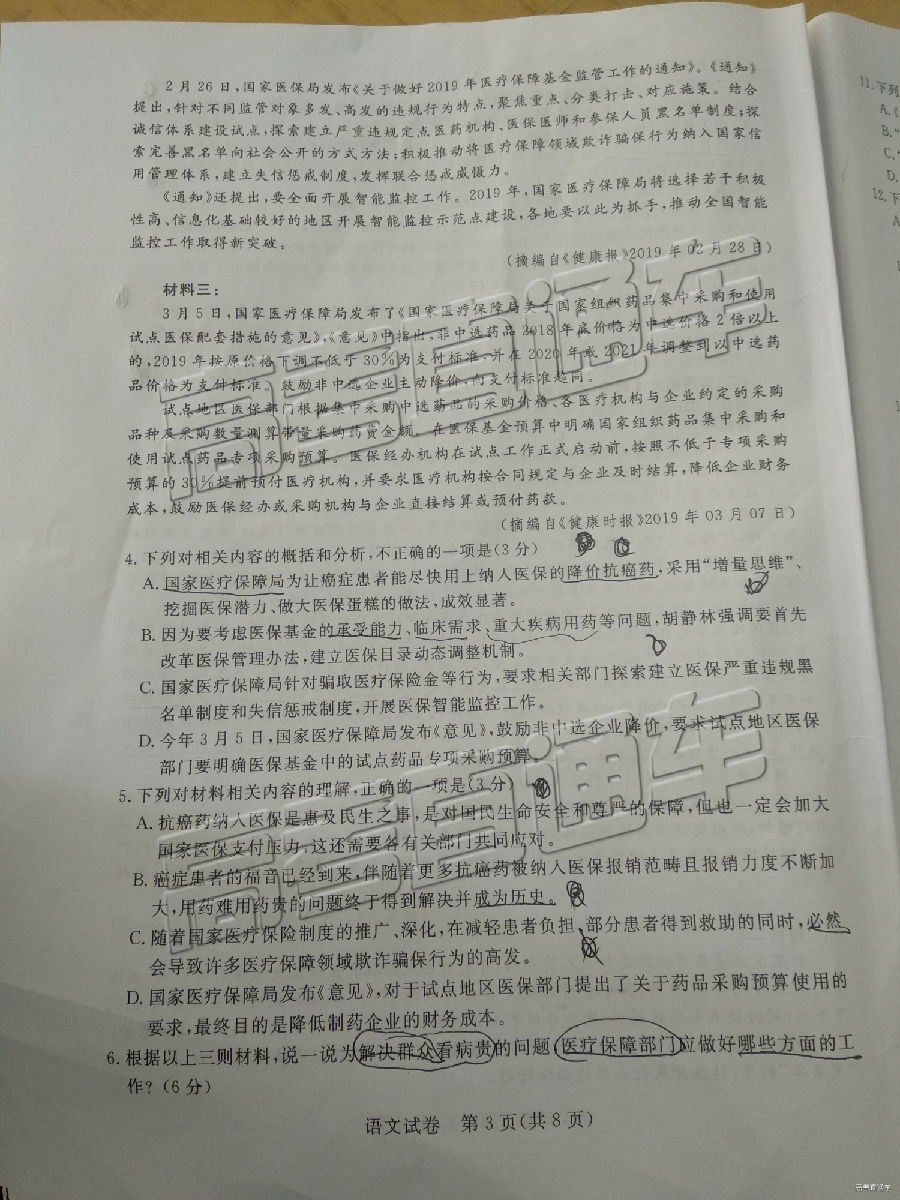 2月26日,国家医保局发布《关于做好2019年医疗保障基金监管工作的通知》。《通知》
提出,针对不同监管对象多发、高发的违规行为特点,聚焦重点、分类打击、对应施策。结合
诚信体系建设试点,探索建立严重违规定点医药机构、医保医师和参保人员黑名单制度;探
索完善黑名单向社会公开的方式方法;积极推动将医疗保障领域欺诈骗保行为纳入国家信
用管理体系,建立失信惩戒制度,发挥联合惩戒威慑力。
《通知》还提出,要全面开展智能监控工作。2019年,国家医疗保障局将选择若干积极
性高、信息化基础较好的地区开展智能监控示范点建设,各地要以此为抓手,推动全国智能
监控工作取得新突破。
(摘编自《健康报》2019年02月28日)
材料三:
3月5日,国家医疗保障局发布了《国家医疗保障局关于国家组织药品集中采购和使用
试点医保配套措施的意见》,《意见》中指出,非中选药品2018年底价格为中选价格2倍以上
的,2019年按原价格下调不低于30%为支付标准,并在2020年或2021年调整到以中选药
品价格为支付标准。鼓励非中选企业主动降价,向支付标准趋同。
试点地区医保部门根据集中采购中选药品的采购价格、各医疗机构与企业约定的采购
品种及采购数量测算带量采购药费金额。在医保基金预算中明确国家组织药品集中采购和
使用试点药品专项采购预算。医保经办机构在试点工作正式启动前,按照不低于专项采购
预算的30%提前预付医疗机构,并要求医疗机构按合同规定与企业及时结算,降低企业财务
成本,鼓励医保经办或采购机构与企业直接结算或预付药款。
(摘编自《健康时报》2019年03月07日)
4.下列对相关内容的概括和分析,不正确的一项是(3分)
A.国家医疗保障局为让癌症患者能尽快用上纳入医保的降价抗癌药,采用“增量思维”、
挖掘医保潜力、做大医保蛋糕的做法,成效显著。
B.因为要考虑医保基金的承受能力、临床需求、重大疾病用药等问题,胡静林强调要首先
改革医保管理办法,建立医保目录动态调整机制。
C.国家医疗保障局针对骗取医疗保险金等行为,要求相关部门探索建立医保严重违规黑
名单制度和失信惩戒制度,开展医保智能监控工作。
D.今年3月5日,国家医疗保障局发布《意见》,鼓励非中选企业降价,要求试点地区医保
部门要明确医保基金中的试点药品专项采购预算。
5.下列对材料相关内容的理解,正确的一项是(3分)
A.抗癌药纳入医保是惠及民生之事,是对国民生命安全和尊严的保障,但也一定会加大
国家医保支付压力,这还需要各有关部门共同应对。
B.癌症患者的福音已经到来,伴随着更多抗癌药被纳入医保报销范畴且报销力度不断加
大,用药难用药贵的问题终于得到解决并成为历史。
C.随着国家医疗保险制度的推广、深化,在减轻患者负担、部分患者得到救助的同时,必然
会导致许多医疗保障领域欺诈骗保行为的高发。
D.国家医疗保障局发布《意见》,对于试点地区医保部门提出了关于药品采购预算使用的
要求,最终目的是降低制药企业的财务成本。
6.根据以上三则材料,说一说为解决群众看病贵的问题,医疗保障部门应做好哪些方面的工
作?(6分)
语文试卷 第3页(共8页)
11.下列
A.《
B.“
C.“
D.
12.下
A
高考直通车
高考直通车